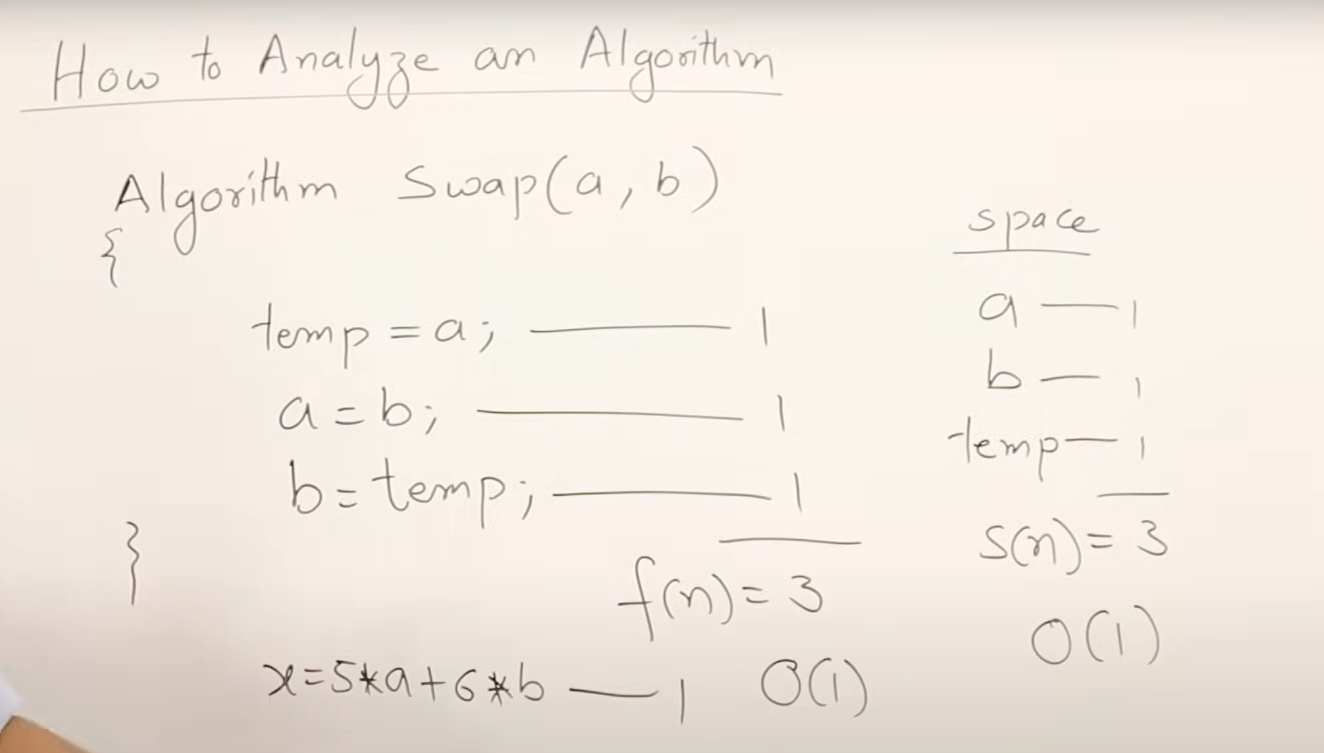 How to Analyze an Algorithm
Algorithm Swap(a, b)
{
temp = a; — 1
a = b; — 1
b = temp; — 1
}
f(n) = 3
x=5*a+6*b — 1 O(1)
space
a — 1
b — 1
temp — 1
S(n) = 3
O(1)